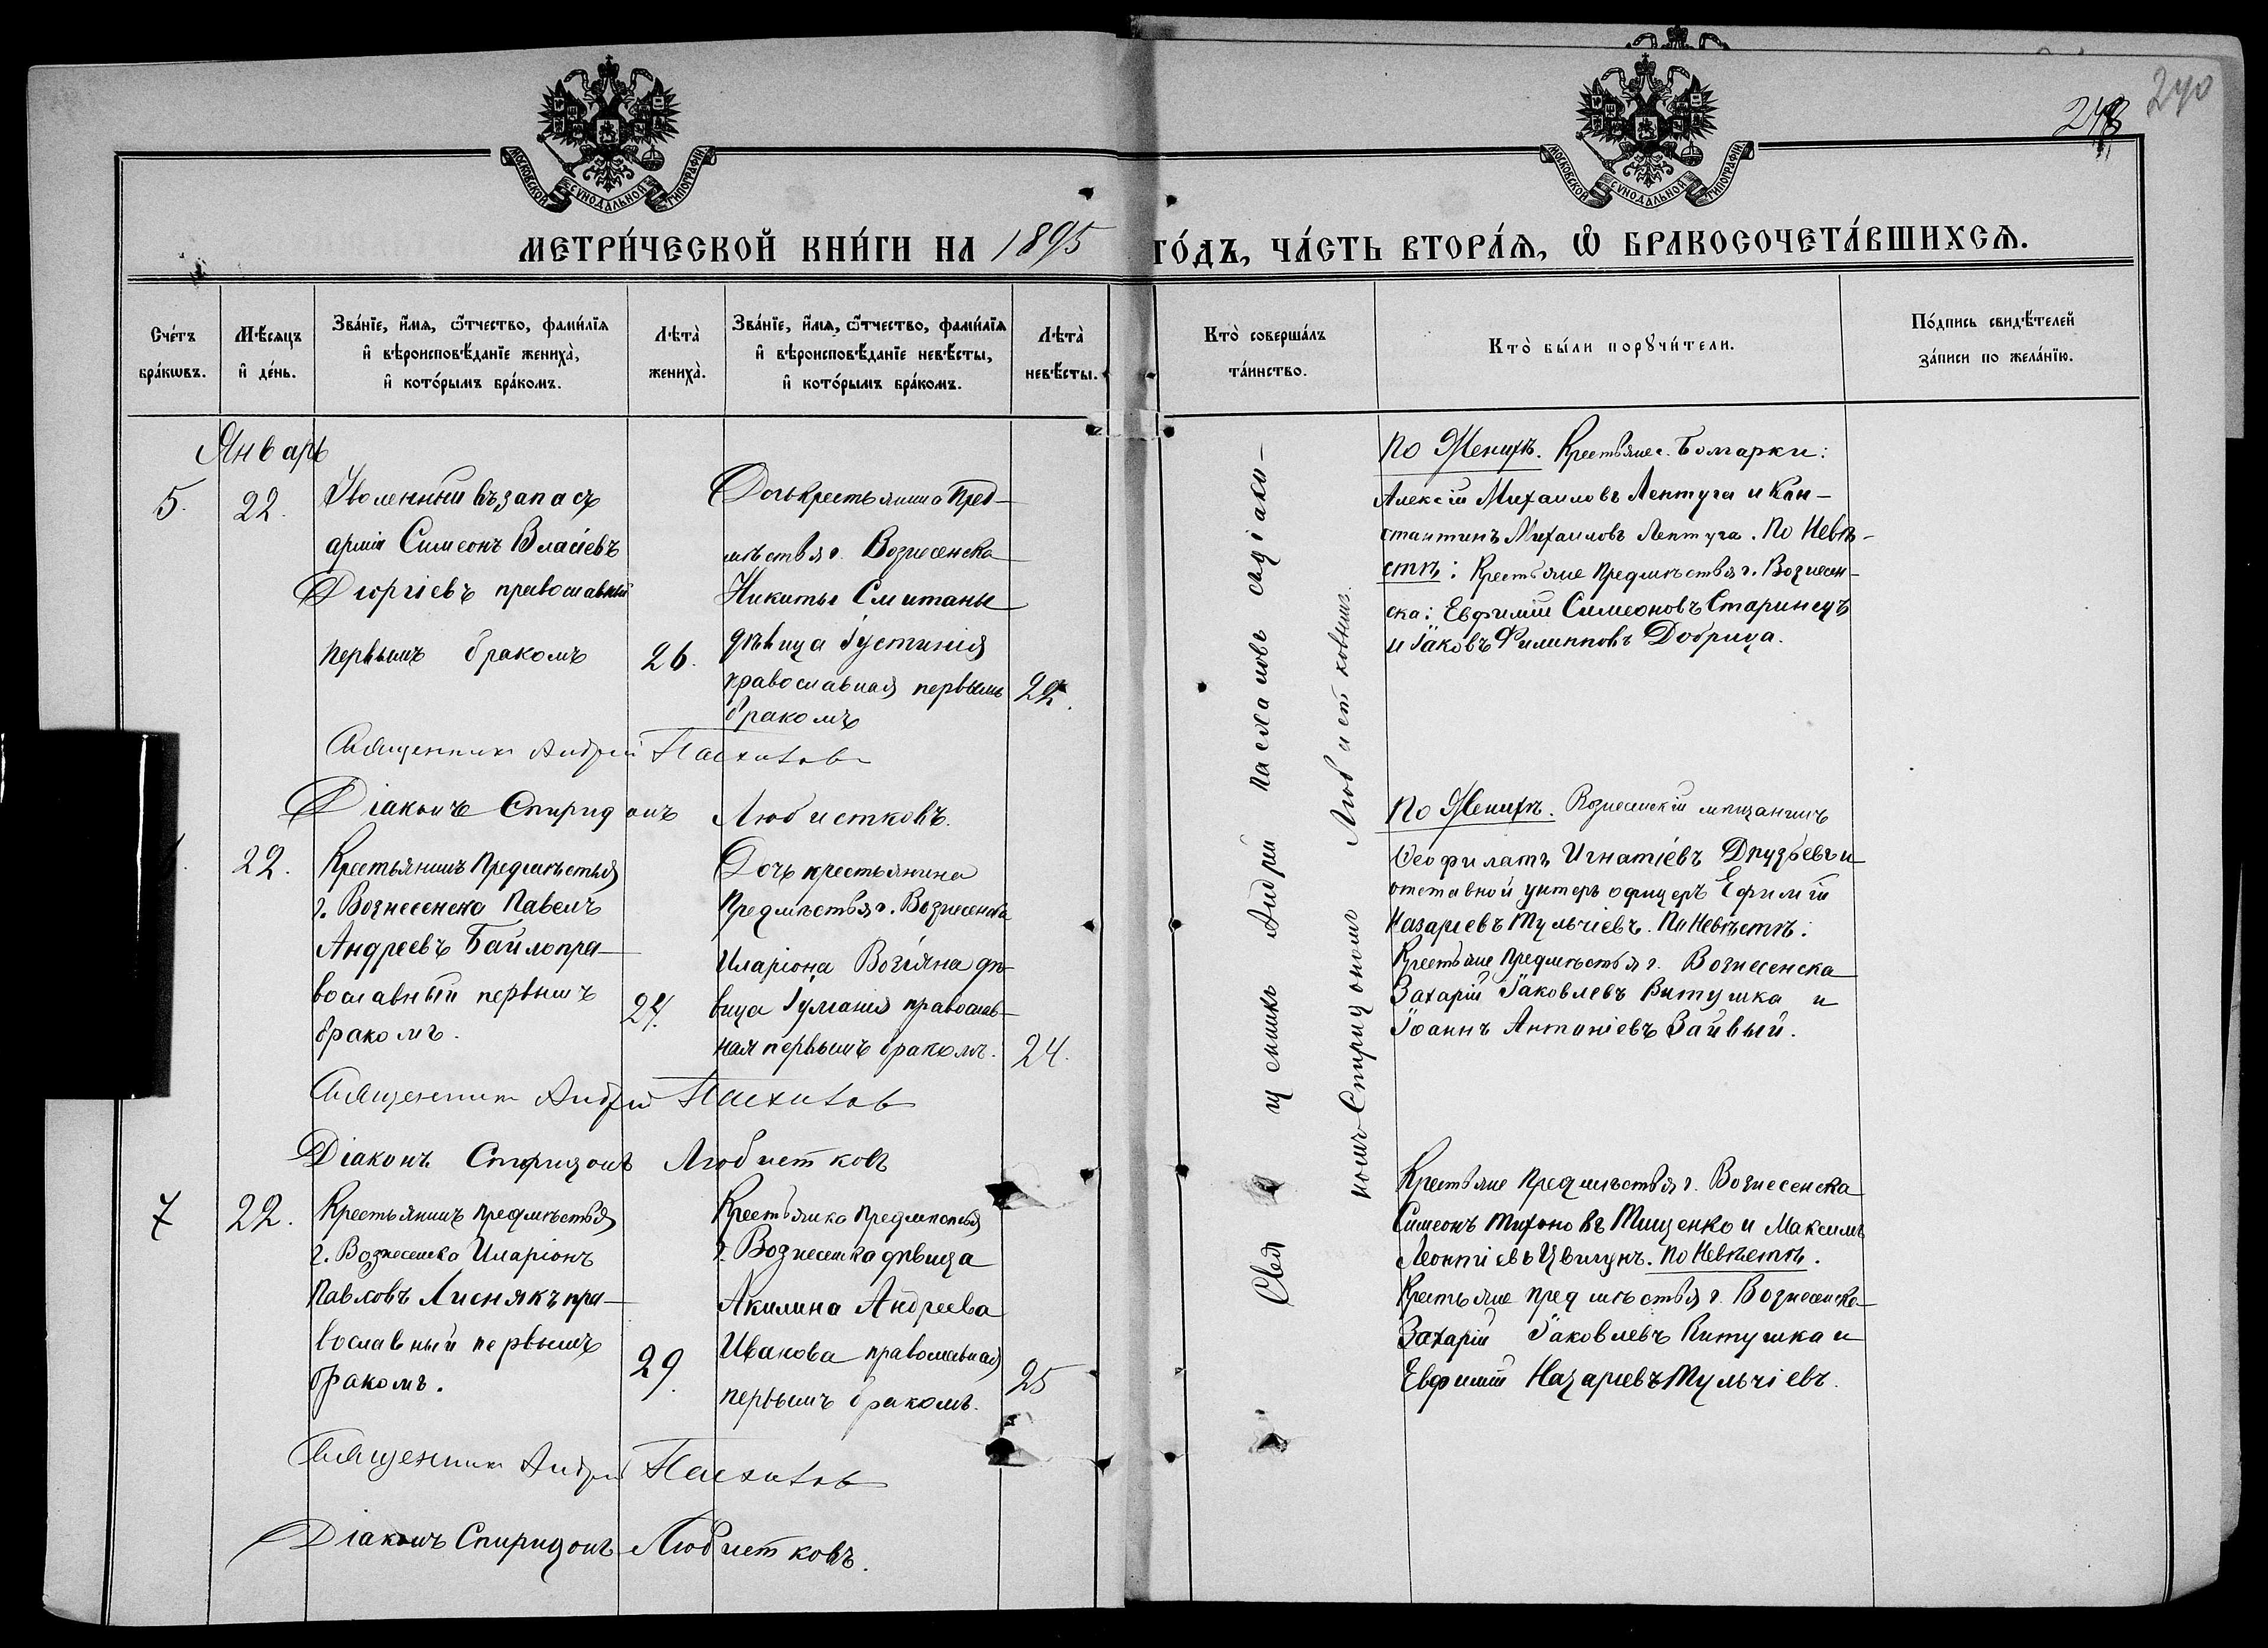 240
МОСКОВСКОЙ СѴНОДАЛЬНОЙ ТИПОГРАФІИ
МОСКОВСКОЙ СѴНОДАЛЬНОЙ ТИПОГРАФІИ
МЕТРИ́ЧЕСКОЙ КНИ́ГИ НА 1895 ГО́ДЪ, ЧА́СТЬ ВТОРА́Ѧ, Ѽ БРАКОСОЧЕТА́ВШИХСѦ.
Счётъ бра́кѡвъ.
Мѣ́сѧцъ и҆ де́нь.
Зва́нїе, и҆́мѧ, ѻ҆́тчество, фами́лїѧ
и҆ вѣроисповѣ́данїе жениха̀,
и҆ кото́рымъ бра́комъ.
Лѣта̀ жениха̀.
Зва́нїе, и҆́мѧ, ѻ҆́тчество, фами́лїѧ
и҆ вѣроисповѣ́данїе невѣ́сты,
и҆ кото́рымъ бра́комъ.
Лѣта̀ невѣ́сты.
Кто̀ соверша́лъ та́инство.
Кто̀ бы́ли порꙋчи́тели.
По́дпись свидѣ́телей
за́писи по жела́нїю.
Январь
5. 22.
Уволенный въ запасъ
арміи Симеонъ Власіевъ
Георгіевъ православный
первымъ бракомъ
26.
Дочь крестьянина Пред-
мѣстья г. Вознесенска
Никиты Сметаны
дѣвица Іустинія
православная первымъ
бракомъ
22.
Священникъ Андрей Пасхаловъ
Діаконъ Спиридонъ Любистковъ.
По Женихѣ. Крестьяне с. Болгарки:
Алексій Михаиловъ Лентуга и Кон-
стантинъ Михаиловъ Лентуга. По Невѣ-
стѣ: Крестьяне Предмѣстья г. Вознесен-
ска: Евфимій Симеоновъ Старинецъ
и Іаковъ Филипповъ Добрица.
22.
Крестьянинъ Предмѣстья
г. Вознесенска Павелъ
Андреевъ Байло пра-
вославный первымъ
бракомъ.
24.
Дочь крестьянина
Предмѣстья г. Вознесенска
Иларіона Возіяна дѣ-
вица Іуліанія православ-
ная первымъ бракомъ.
24.
Священникъ Андрей Пасхаловъ
Діаконъ Спиридонъ Любистковъ
По Женихѣ. Вознесенскій мѣщанинъ
Ѳеофилатъ Игнатіевъ Друзьевъ и
отставной унтеръ офицеръ Ефимій
Назаріевъ Мульчіевъ. По Невѣстѣ:
Крестьяне Предмѣстья г. Вознесенска
Захарій Іаковлевъ Витушка и
Іоаннъ Антоніевъ Зайвый.
7 22.
Крестьянинъ Предмѣстья
г. Вознесенска Иларіонъ
Павловъ Лиснякъ пра-
вославный первымъ
бракомъ.
29.
Крестьянка Предмѣстья
г. Вознесенска дѣвица
Акилина Андреева
Иванова православная
первымъ бракомъ.
25
Священникъ Андрей Пасхаловъ
Діаконъ Спиридонъ Любистковъ.
Крестьяне Предмѣстья г. Вознесенска
Симеонъ Тихоновъ Тищенко и Максимъ
Леонтіевъ Цвигунъ. По Невѣстѣ.
Крестьяне предмѣстья г. Вознесенска
Захарій Іаковлевъ Витушка и
Евфимій Назаріевъ Мульчіевъ.
Священникъ Андрей Пасхаловъ съ діако-
номъ Спиридономъ Любистковымъ.